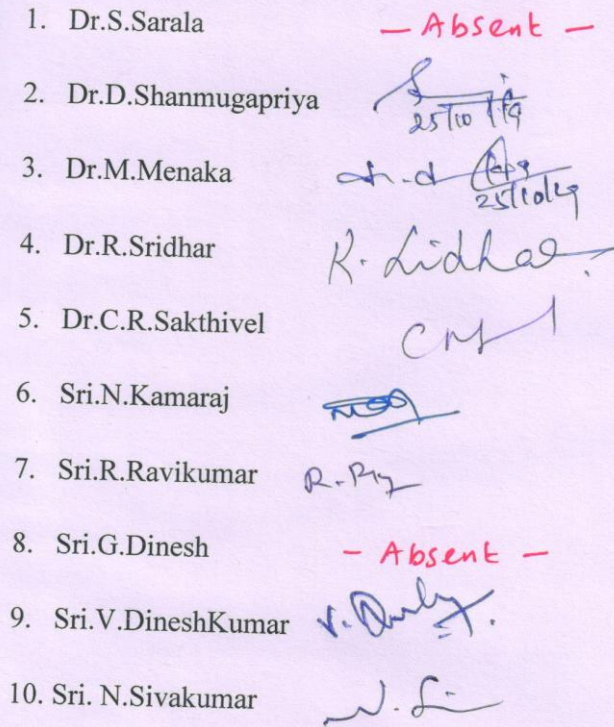 1. Dr.S.Sarala - Absent -
2. Dr.D.Shanmugapriya 25/10/19
3. Dr.M.Menaka 25/10/19
4. Dr.R.Sridhar R. Sridhar
5. Dr.C.R.Sakthivel
6. Sri.N.Kamaraj
7. Sri.R.Ravikumar
8. Sri.G.Dinesh - Absent -
9. Sri.V.DineshKumar
10. Sri. N.Sivakumar